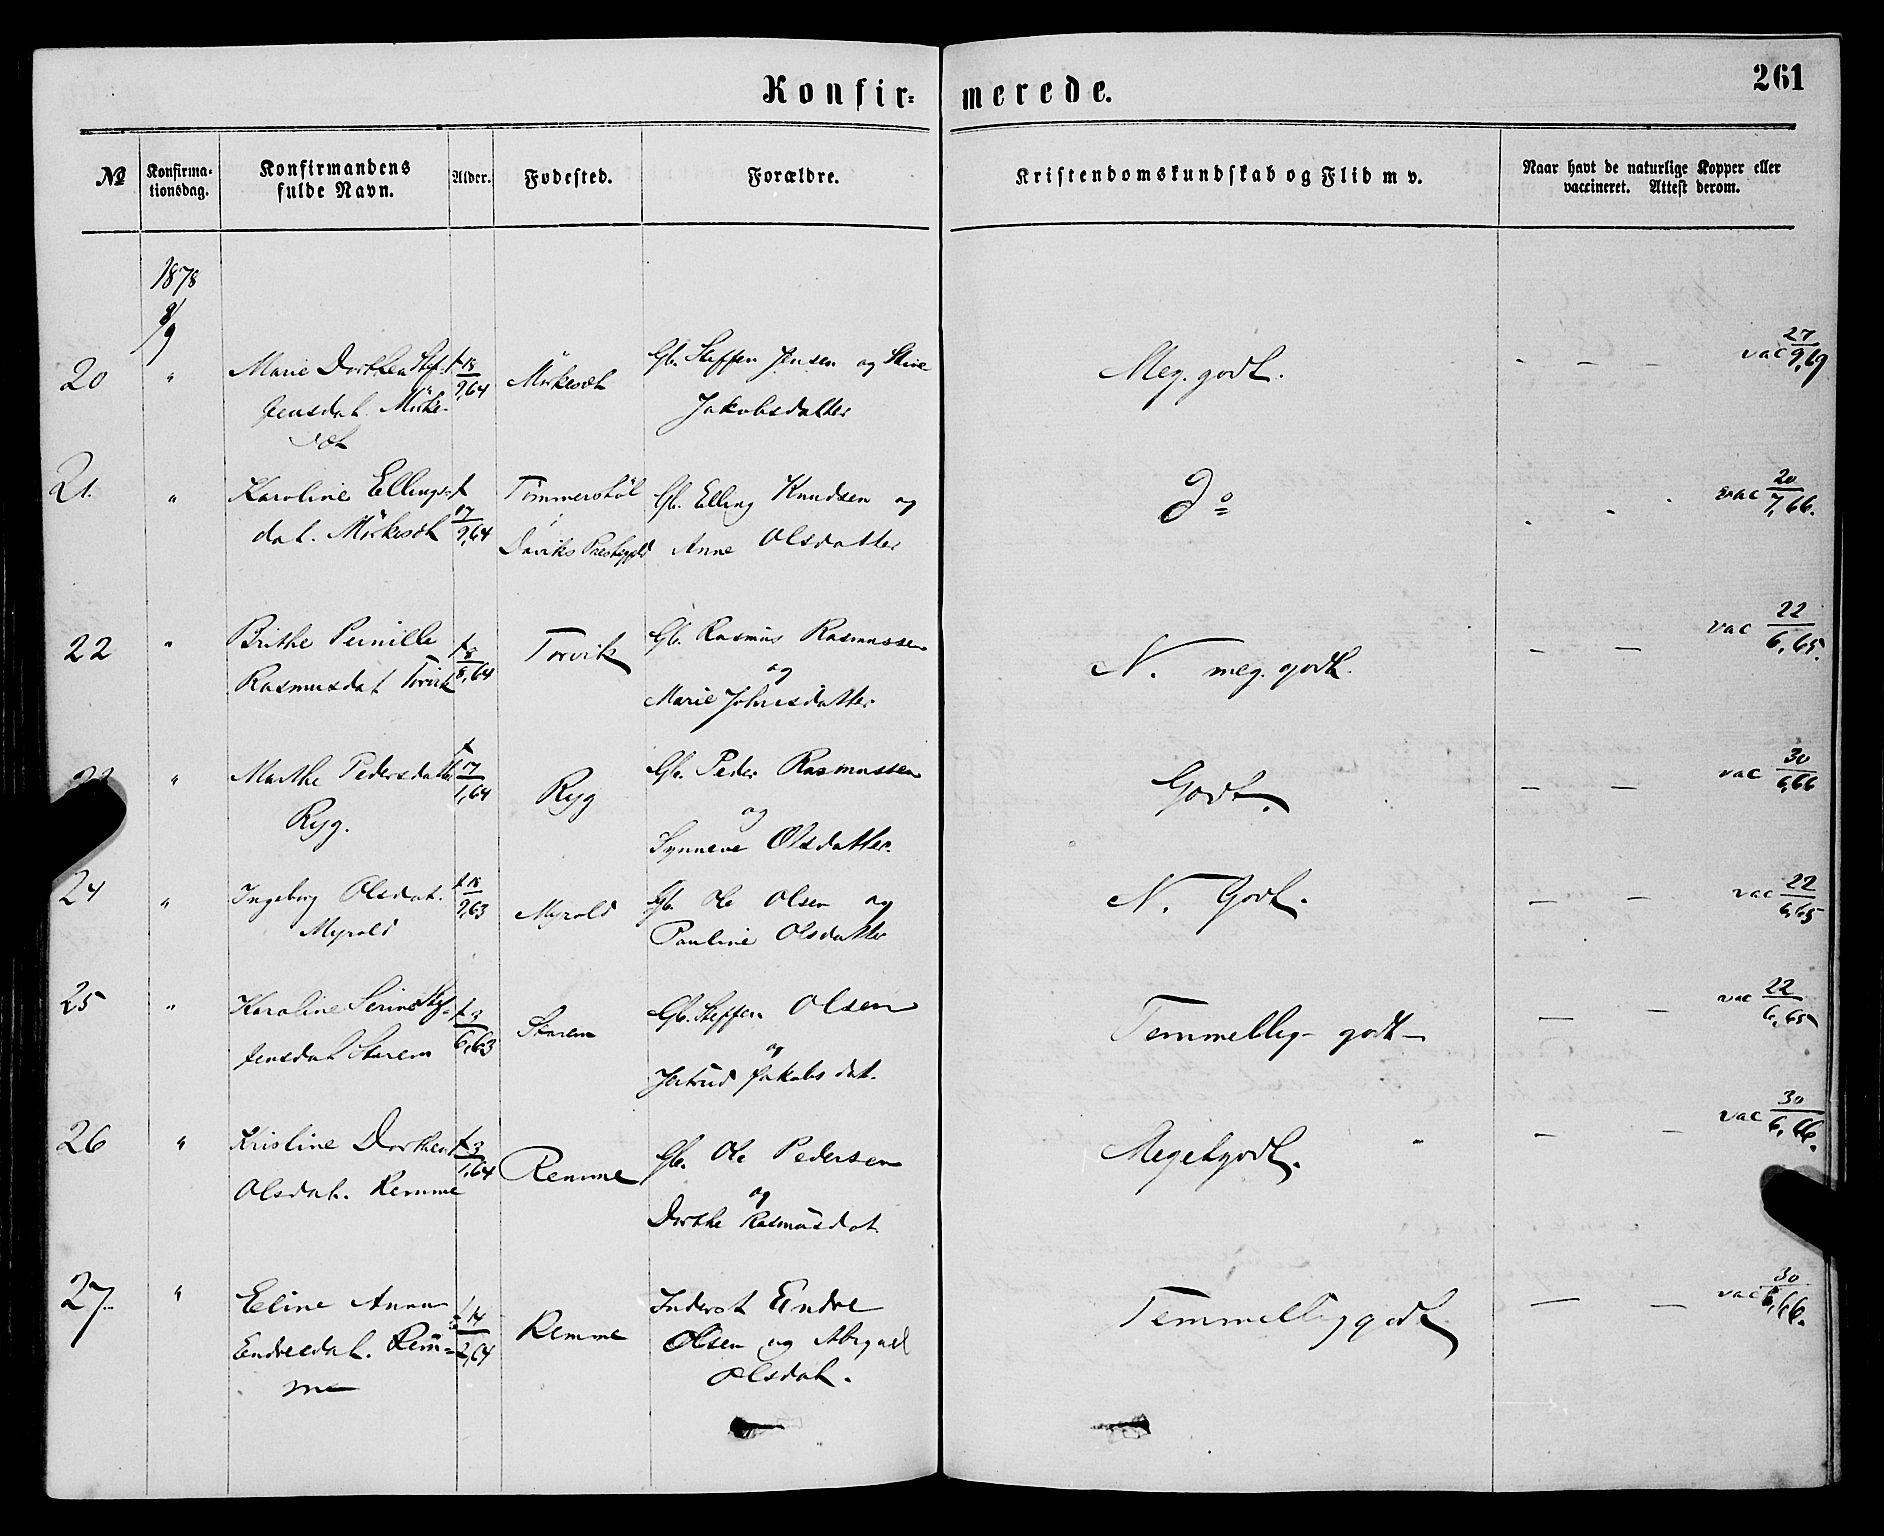 Konfir= merede.
261
No
Konfirma-
tionsdag.
Konfirmandens
fulde Navn.
Alder.
Fødested.
Forældre.
Kristendomskundskab og Flid m v.
Naar havt de naturlige Kopper eller
vaccineret. Attest derom.
1878
8/9
20 " Marie Dorthea Stef- f 18/9,64 Mörkesæt Gb. Steffen Jensen og Stine Meg. godt. - - - vac 27/9,69
fensdat. Mörke-
sæt
Jakobsdatter
21. " Karoline Ellings- f 17/9,64 Tömmerstöl Gb. Elling Knudsen og Do - - - vac 20/7,66.
dat. Mörkesæt Daviks Prestegjeld Anne Olsdatter
22 " Brithe Pernille f 8/8,64 Torvik Gb. Rasmus Rasmussen N. meg. godt. - - vac 22/6,65.
Rasmusdat Torvik
og
Marie Johnesdatter
23 " Marthe Pedersdatter f 17/1,64 Ryg Gb. Peder Rasmussen Godt. - - vac 30/6,66
Ryg.
og
Synneve Olsdatter.
24 " Ingeborg Olsdat. f 18/9,63 Myrold Gb. Ole Olsen og N. Godt. - - vac 22/6,65
Myrold
Pauline Olsdatter
25 " Karoline Serine Stef- f 3/6,63 Starem Gb. Steffen Olsen Temmellig godt - - vac 22/6,65
fensdat Starem
og
Jertrud Jakobsdat.
26 " Kristine Dorthea f 3/1,64 Remme Gb. Ole Pedersen Megetgodt. " - - vac 30/6,66.
Olsdat. Remme
og
Dorthe Rasmusdat.
27. " Eline Anna f 14/2,64 Remme Inderst Endre Temmellig godt - - vac 30/6,66.
Endresdat. Rem-
me
Olsen og Abigael
Olsdat.